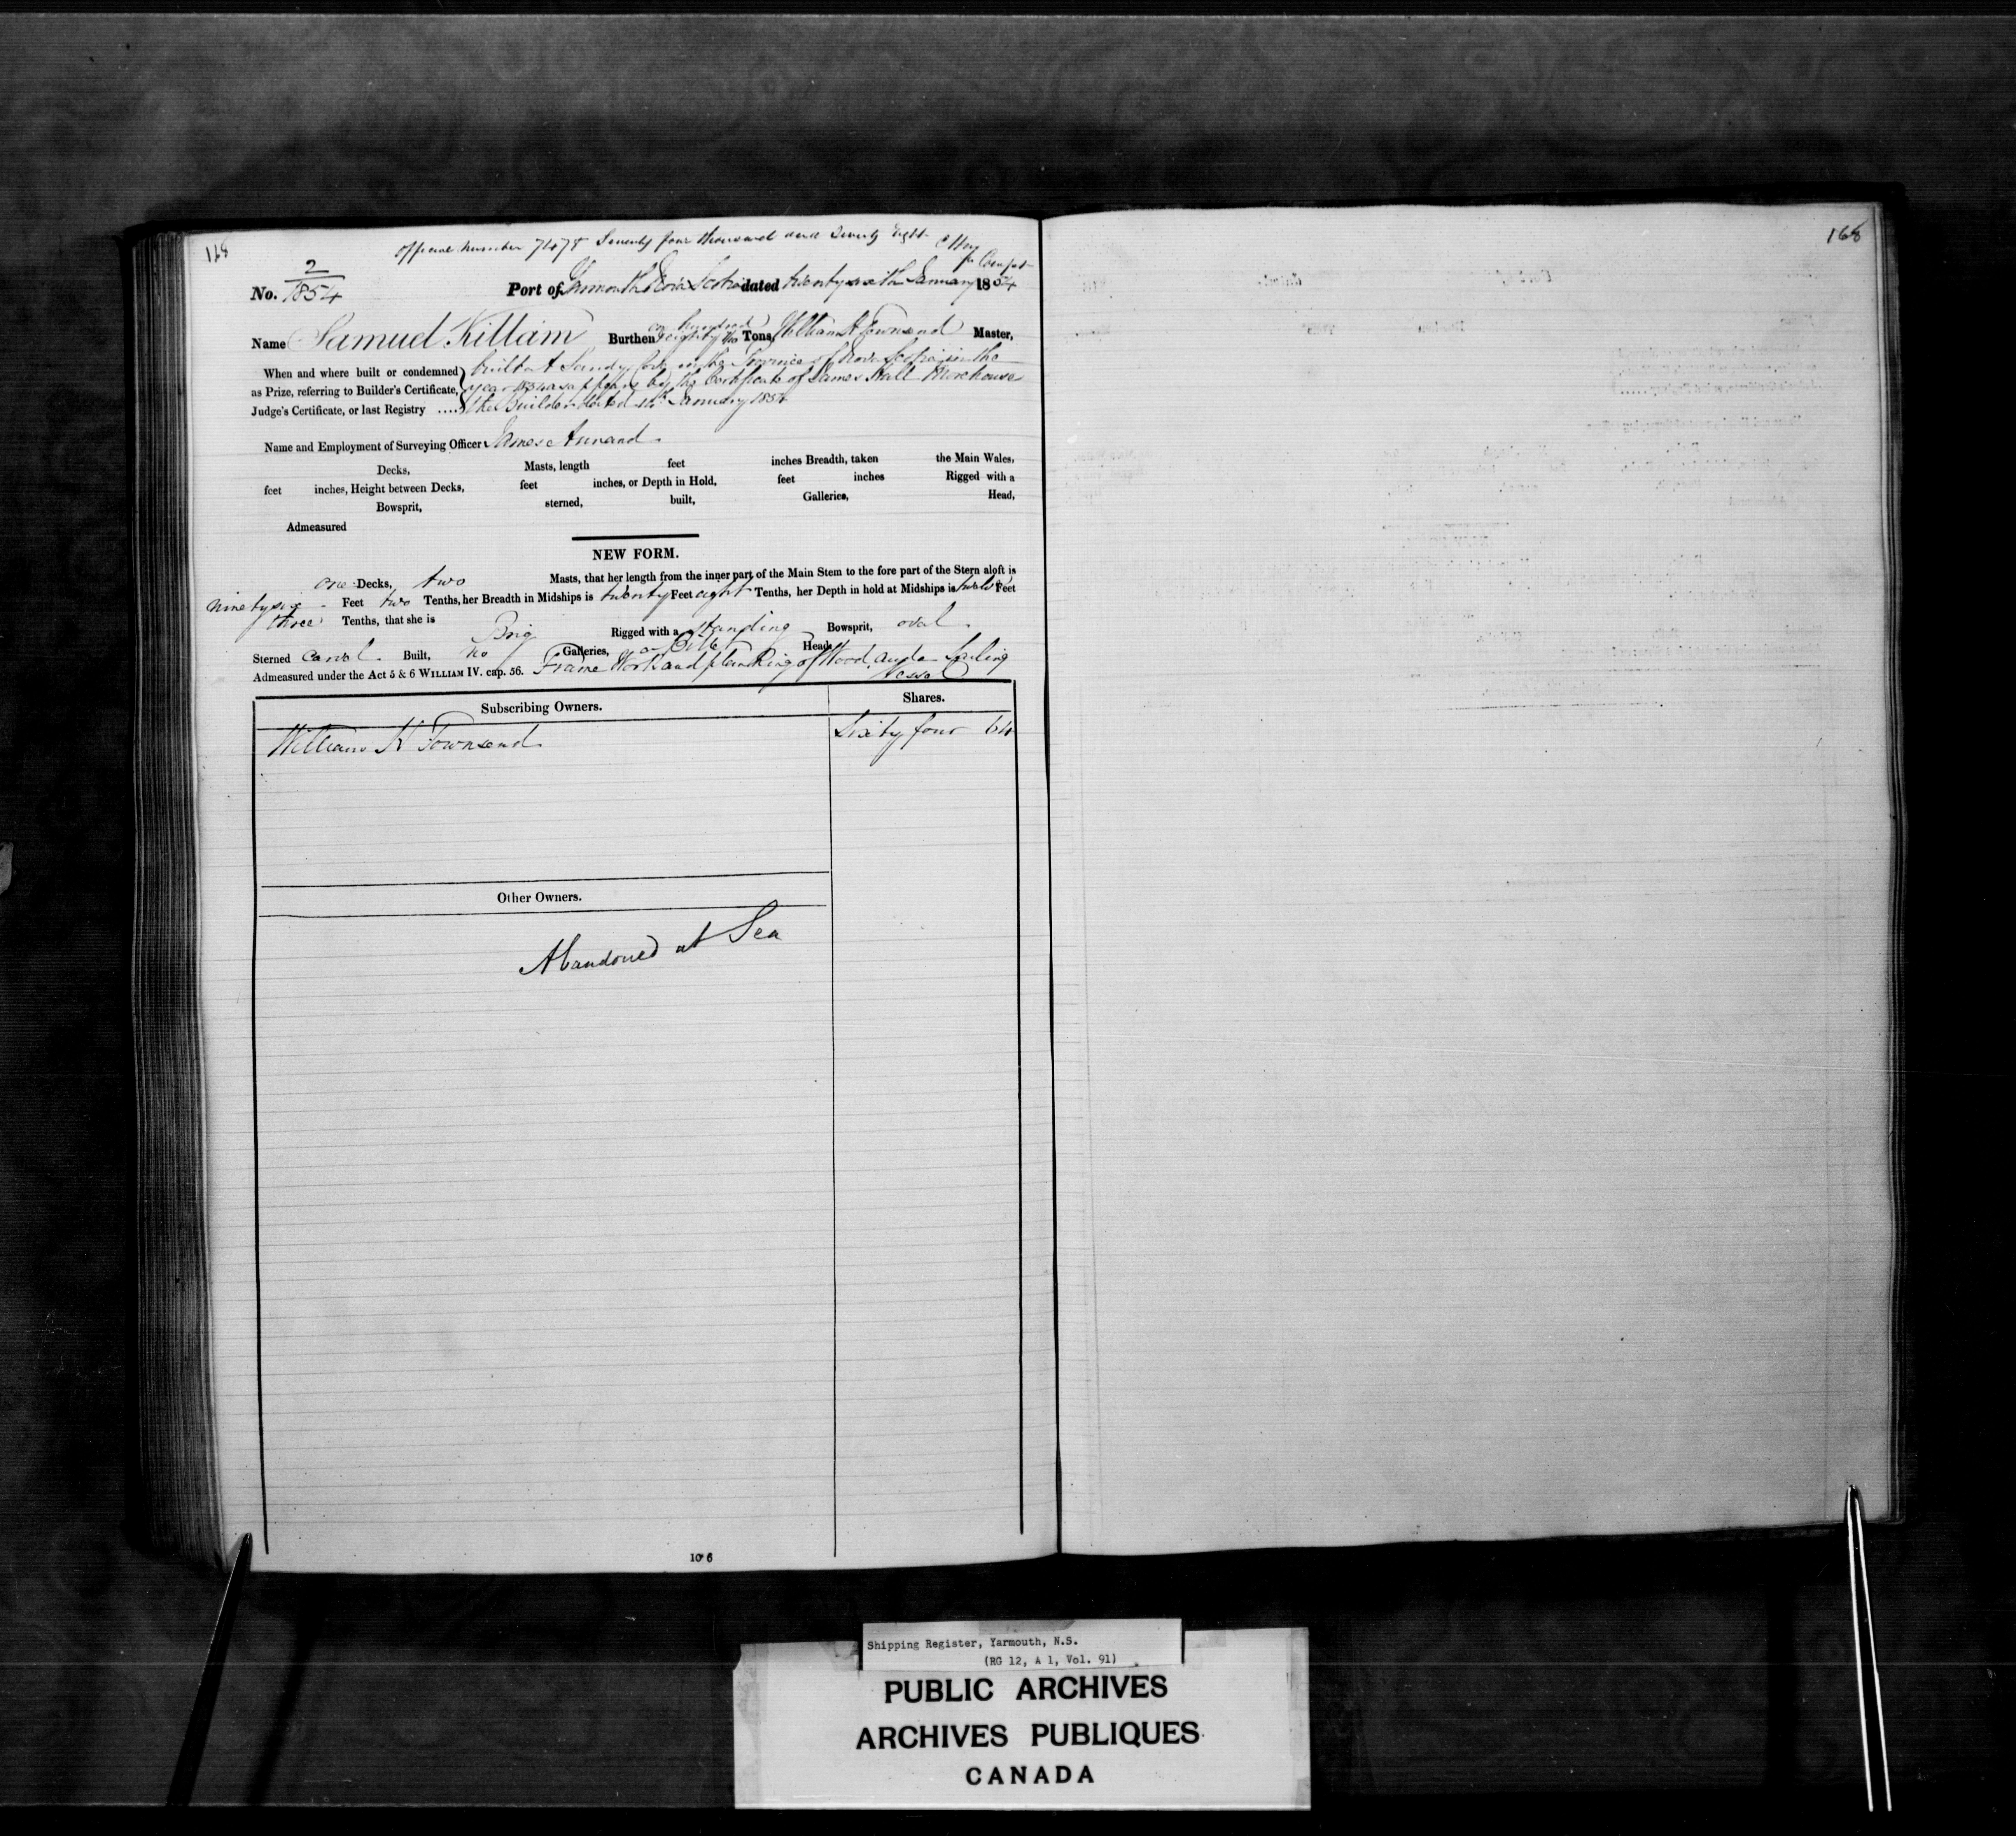 168
Official Number 74078 Seventy four thousand and Seventy Eight
2
No. 1854 Port of Yarmouth Nova Scotia dated twenty sixth January 1854
one hundred
Name Samuel Killam Burthen & eighty two Tons, William K Townsend Master,
When and where built or condemned built at Sandy Cove in the Province of Nova Scotia in the
as Prize, referring to Builder's Certificate, year 1854 as appears by the Certificate of James Hall Morehouse
Judge's Certificate, or last Registry .... the Builder dated January 1854
Name and Employment of Surveying Officer James Annand
Decks, Masts, length feet inches Breadth, taken the Main Wales,
feet inches, Height between Decks, feet inches, or Depth in Hold, feet inches Rigged with a
Bowsprit, sterned, built, Galleries, Head,
Admeasured
NEW FORM.
one Decks, two Masts, that her length from the inner part of the Main Stem to the fore part of the Stern aloft is
ninety six Feet two Tenths, her Breadth in Midships is twenty Feet eight Tenths, her Depth in hold at Midships is twelve Feet
three Tenths, that she is Brig Rigged with a standing Bowsprit, oval
Sterned Carvel Built, no Galleries, a Billet Head
Admeasured under the Act 5 & 6 WILLIAM IV. cap. 56. Frame Work and planking of Wood, and a Sailing
Vessel
Subscribing Owners. Shares.
William K Townsend Sixty four 64
Other Owners.
Abandoned at Sea
10*6
168
Shipping Register, Yarmouth, N.S.
(RG 12, A 1, Vol. 91)
PUBLIC ARCHIVES
ARCHIVES PUBLIQUES
CANADA